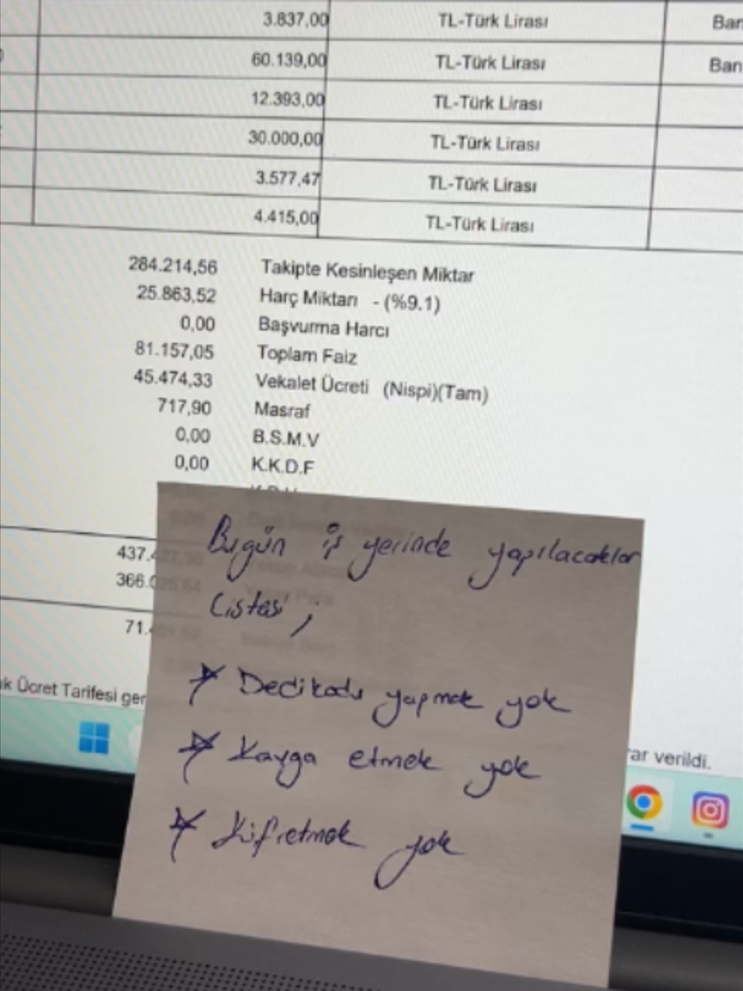 3.837,00 TL-Türk Lirası Ban
60.139,00 TL-Türk Lirası Ban
12.393,00 TL-Türk Lirası
30.000,00 TL-Türk Lirası
3.577,47 TL-Türk Lirası
4.415,00 TL-Türk Lirası
284.214,56 Takipte Kesinleşen Miktar
25.863,52 Harç Miktarı - (%9.1)
0,00 Başvurma Harcı
81.157,05 Toplam Faiz
45.474,33 Vekalet Ücreti (Nispi)(Tam)
717,90 Masraf
0,00 B.S.M.V
0,00 K.K.D.F
437.
366.
71.
k Ücret Tarifesi ger
ar verildi.
Bugün iş yerinde yapılacaklar
Listesi ;
* Dedikodu yapmak yok
* Kavga etmek yok
* Küfretmek yok